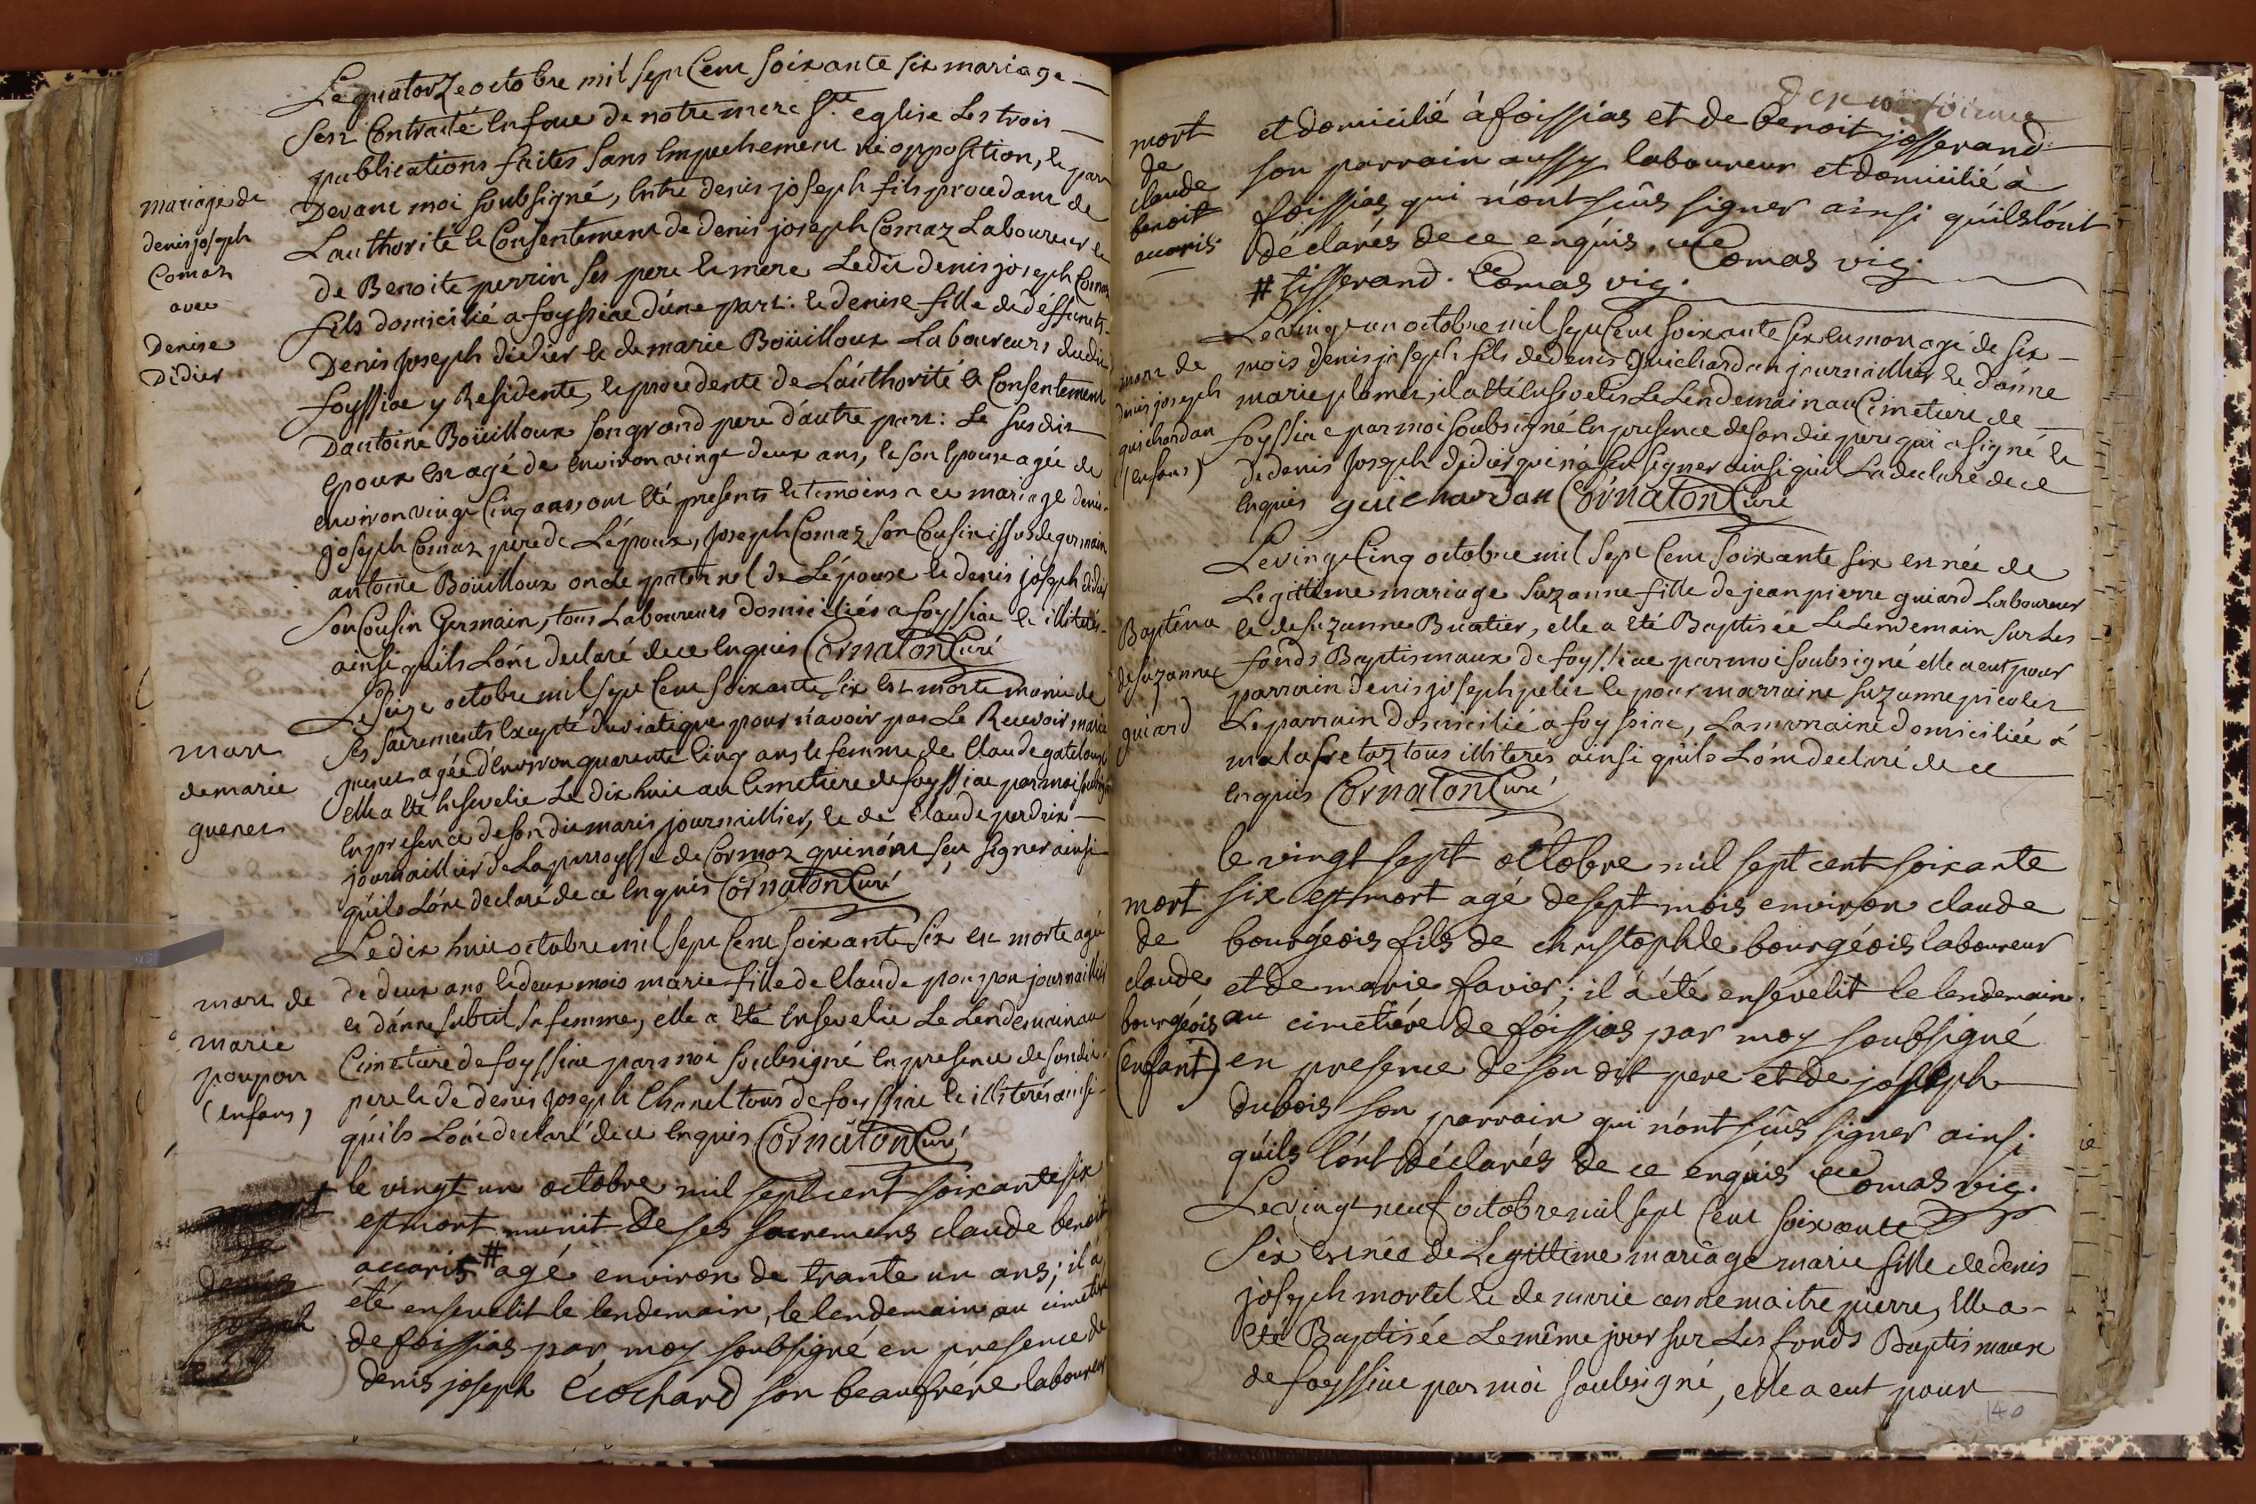 Le quatorze octobre mil sept Cent soixante six mariage
sest Contracté En face de notre mere Ste eglise Les trois
publications faites sans Empechement ni opposition, et par
Devant moi soubsigné, Entre denis joseph fils procedant de
mariage de
denis joseph
Comaz
avec
Denise
Didier
L'authorité le Consentement de denis joseph Comaz Laboureur et
de Benoite perrin ses pere et mere Ledit denis joseph Comaz
fils domicilié a foyssiac d'une part: et denise fille de deffuncts
Denis Joseph didier et de marie Boüilloux Laboureurs dudit
foyssiac y Residente, et procedente de L'authorité et Consentement
D'antoine Boüilloux son grand pere d'autre part: Le susdit
Epoux est agé de environ vingt deux ans, et son Epouse agée de
environ vingt Cinq ans, ont eté presents et temoins a ce mariage denis
joseph Comaz pere de L'époux, Joseph Comaz son Cousin issus de germain
antoine Boüilloux oncle paternel de L'épouse et denis joseph didier
son Cousin Germain, tous Laboureurs domiciliés a foyssiac et illiterés
ainsi quils L'ont declaré de ce Enquis Cornaton Curé
Le seize octobre mil sept Cent soixante six Est morte munie de
ses sacrements Excepté du viatique pour n'avoir pas Le Recevoir marie
mort
de marie
guenet
guenet agée d'environ quarente Cinq ans et femme de Claude gatelouz
elle a eté Ensevelie Le dix huit au Cimetiere de foyssiac par moi soubsigné
En presence de son dit maris journallier, et de Claude perdrix
journaillier de La parroysse de Cormoz qui n'ont seu signer ainsi
quils L'ont declaré de ce Enquis Cornaton Curé
Le dix huit octobre mil sept Cent soixante six est morte agée
mort de
marie
poupon
(Enfans)
de deux ans et deux mois marie fille de Claude poupon journaillier
et d'anne subtil sa femme, elle a eté Ensevelie Le Lendemain au
Cimetiere de foyssiac par moi soubsigné En presence de son dit
pere et de denis Joseph Chanel tous de foyssiac et illiterés ainsi
quils L'ont declaré de ce Enquis Cornaton Curé
mort
de
denis
joseph
le vingt un octobre mil sept cent soixante six
est mort munit de ses sacremens claude benoit
accaris # agé environ de trante un ans; il a
été ensevelit le lendemain, le lendemain au cimetiere
de foissias par moy soubsigné en presence de
denis joseph écochard son beaufrére laboureur
mort
de
claude
benoit
accaris
et domicilié à foissias et de benoit josserand
son parrain aussy laboureur et domicilié à
foissias qui n'ont sûs signer ainsi qu'ils l'ont
déclarés de ce enquis. Comas vic.
# tisserand. Comas vic.
Le vingt un octobre mil sept Cent soixante six Est mort agé de six
mort de
denis joseph
guichardan
(Enfans)
mois denis joseph fils de denis Guichardan journaillier et d'anne
marie plomet, il a eté Ensevelis Le Lendemain au Cimetiere de
foyssiac par moi soubsigné En presence de son dit pere qui a signé et
de denis Joseph didier qui n'a seu signer ainsi quil L'a declaré de ce
Enquis guichardan Cornaton Curé
Le vingt Cinq octobre mil sept Cent soixante six est née de
Legittime mariage suzanne fille de jean pierre guiard Laboureur
Baptême
de suzanne
guiard
et de suzanne Buatier, elle a eté Baptisée Le Lendemain sur Les
fonds Baptismaux de foyssiac par moi soubsigné elle a eut pour
parrain denis joseph pelez et pour marraine suzanne picolez
Le parrain domicilié a foyssiac, La marraine domiciliée a
malafretaz tous illiterés ainsi quils L'ont declaré de ce
Enquis Cornaton Curé
le vingt sept octobre mil sept cent soixante
mort
de
claude
bourgeois
(enfant)
six est mort agé de sept mois environ claude
bourgéois fils de christophle bourgéois laboureur
et de marie favier; il a été ensévelit le lendemain
au cimetiére de foissias par moy soubsigné
en presence de son dit pere et de joseph
dubois son parrain qui n'ont sûs signer ainsi
qu'ils l'ont déclarés de ce enquis Comas vic.
Le vingt neuf octobre mil sept Cent soixante
six Est née de Legittime mariage marie fille de denis
joseph mortel et de marie anne maitrepierre, Elle a
eté Baptisée Le même jour sur Les fonds Baptismaux
de foyssiac par moi soubsigné, elle a eut pour
140